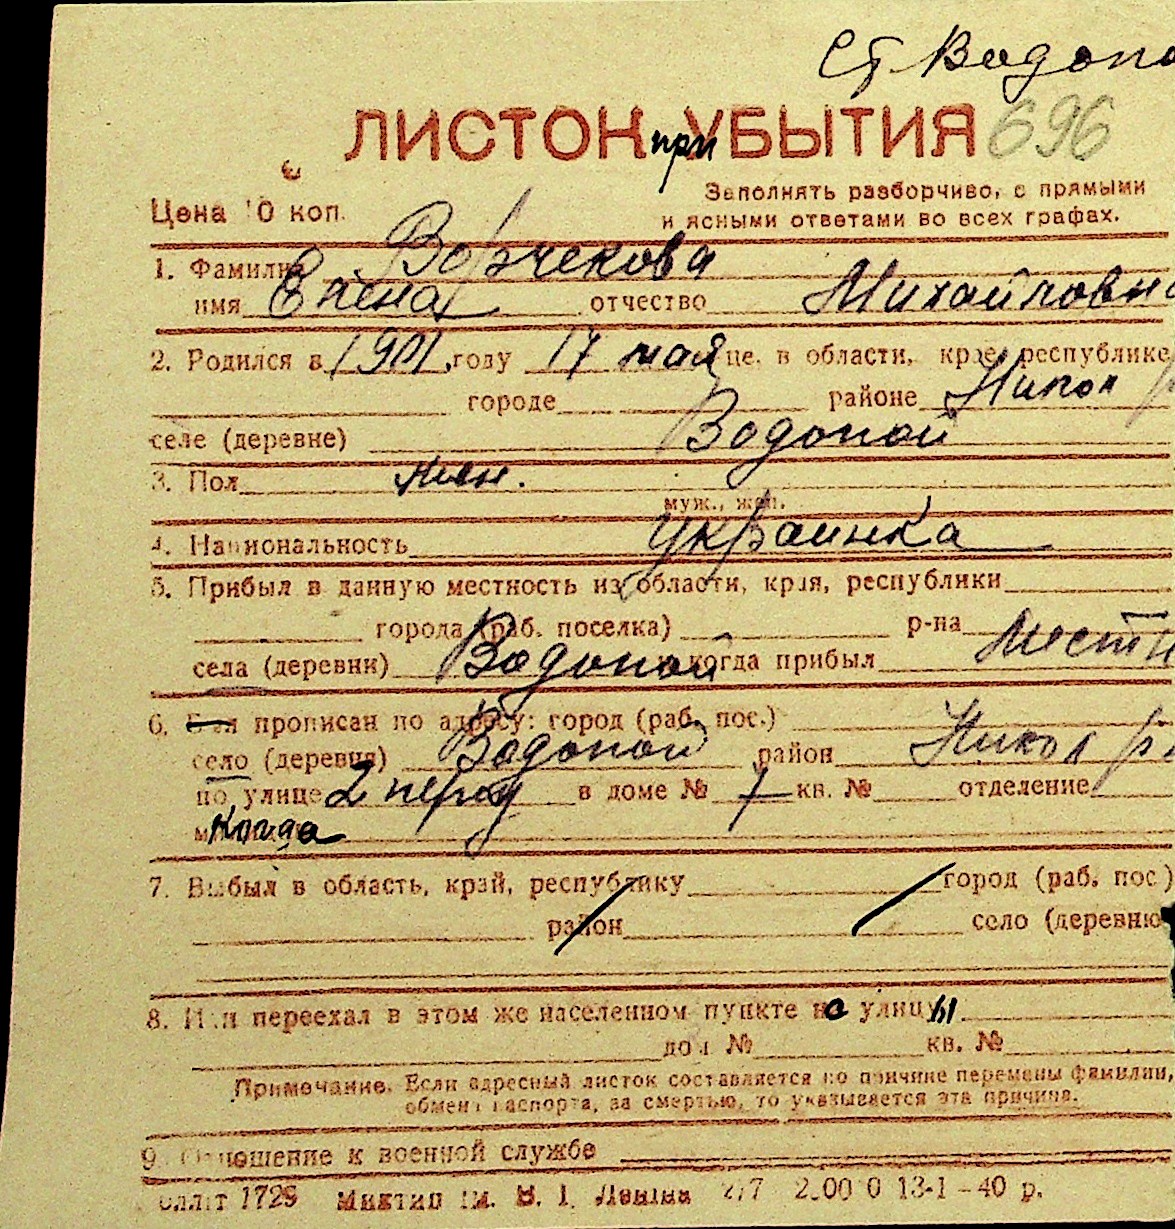 Ст. Водопо
ЛИСТОК при УБЫТИЯ 696
Цена 10 коп.
Заполнять разборчиво, с прямыми
и ясными ответами во всех графах.
1. Фамилия
имя Елена отчество Михайловна
2. Родился в 1901 году 17 мая це. в области, крае, республике
городе районе Никол р
селе (деревне) Водопой
3. Пол жен.
муж., жен.
4. Национальность украинка
5. Прибыл в данную местность из области, края, республики
города (раб. поселка) р-на
села (деревни) Водопой и когда прибыл местн
6. Был прописан по адресу: город (раб. пос.)
село (деревня) Водопой район Никол р
по улице 2 перед в доме № 7 кв. № отделение
м когда
7. Выбыл в область, край, республику город (раб. пос)
район село (деревню
8. Или переехал в этом же населенном пункте на улицы
дом № кв. №
Примечание. Если адресный листок составляется по причине перемены фамилии,
обмен паспорта, за смертью, то указывается эта причина.
9. Отношение к военной службе
1729 им. В. І. Леніна 13-1-40 р.